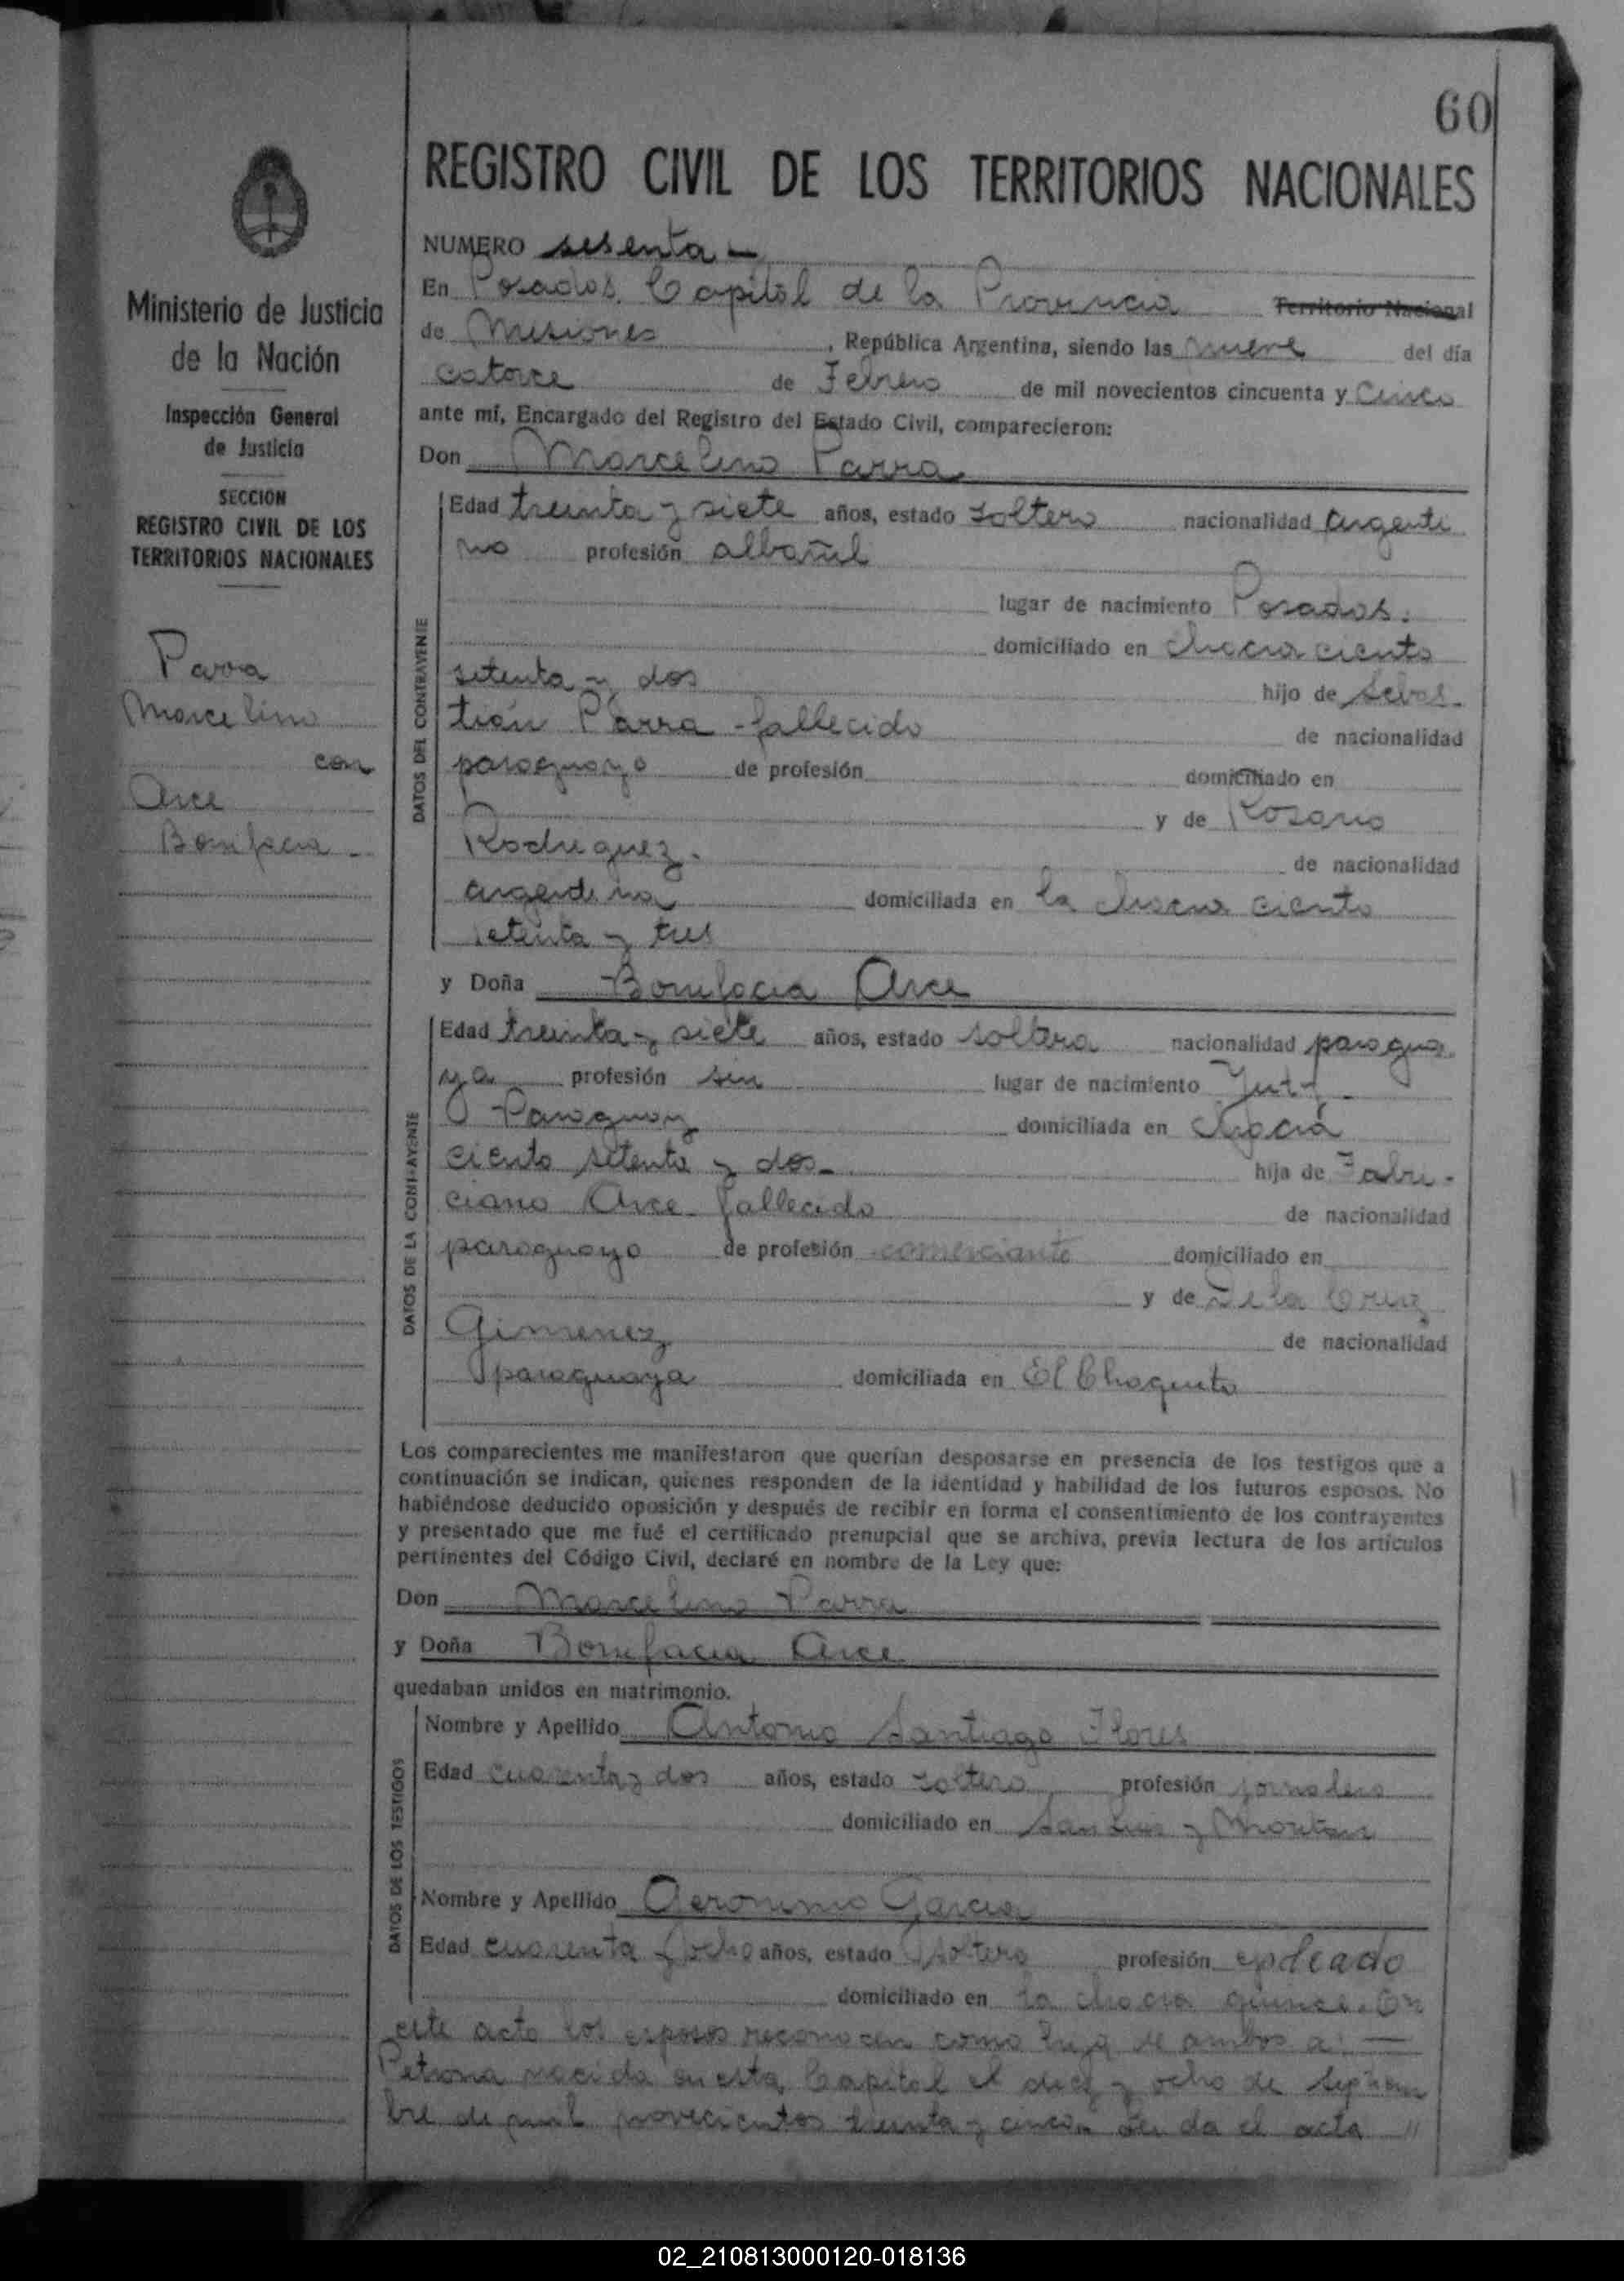 60
REGISTRO CIVIL DE LOS TERRITORIOS NACIONALES
Ministerio de Justicia
de la Nación
Inspección General
de Justicia
SECCION
REGISTRO CIVIL DE LOS
TERRITORIOS NACIONALES
Parra
Marcelino
con
Arce
Bonifacia -
NUMERO sesenta -
En Posadas, Capital de la Provincia Territorio Nacional
de Misiones, República Argentina, siendo las nueve del día
catorce de Febrero de mil novecientos cincuenta y Cinco
ante mí, Encargado del Registro del Estado Civil, comparecieron:
Don Marcelino Parra
DATOS DEL CONTRAYENTE
Edad treinta y siete años, estado soltero nacionalidad argenti
no profesión albañil
lugar de nacimiento Posadas.
domiciliado en chacra ciento
setenta y dos hijo de Sebas-
tián Parra - fallecido de nacionalidad
paraguayo de profesión domiciliado en
y de Rosario
Rodriguez. de nacionalidad
argentina domiciliada en la chacra ciento
setenta y tres
y Doña Bonifacia Arce
DATOS DE LA CONTRAYENTE
Edad treinta y siete años, estado soltera nacionalidad paragua
ya profesión sin lugar de nacimiento Yuty
Paraguay domiciliada en chacra
ciento setenta y dos - hija de Fabri-
ciano Arce fallecido de nacionalidad
paraguayo de profesión comerciante domiciliado en
y de De la Cruz
Gimenez de nacionalidad
paraguaya domiciliada en El Chaquito
Los comparecientes me manifestaron que querían desposarse en presencia de los testigos que a
continuación se indican, quienes responden de la identidad y habilidad de los futuros esposos. No
habiéndose deducido oposición y después de recibir en forma el consentimiento de los contrayentes
y presentado que me fué el certificado prenupcial que se archiva, previa lectura de los artículos
pertinentes del Código Civil, declaré en nombre de la Ley que:
Don Marcelino Parra
y Doña Bonifacia Arce
quedaban unidos en matrimonio.
DATOS DE LOS TESTIGOS
Nombre y Apellido Antonio Santiago Flores
Edad cuarenta y dos años, estado soltero profesión jornalero
domiciliado en San Luis y
Nombre y Apellido Geronimo Garcia
Edad cuarenta y ocho años, estado soltero profesión epleado
domiciliado en la chacra quince. En
este acto los esposos reconocen como hija de ambos a: —
Petrona nacida en esta Capital el diez y ocho de septiem
bre de mil novecientos treinta y cinco. Leida el acta //
02_210813000120-018136